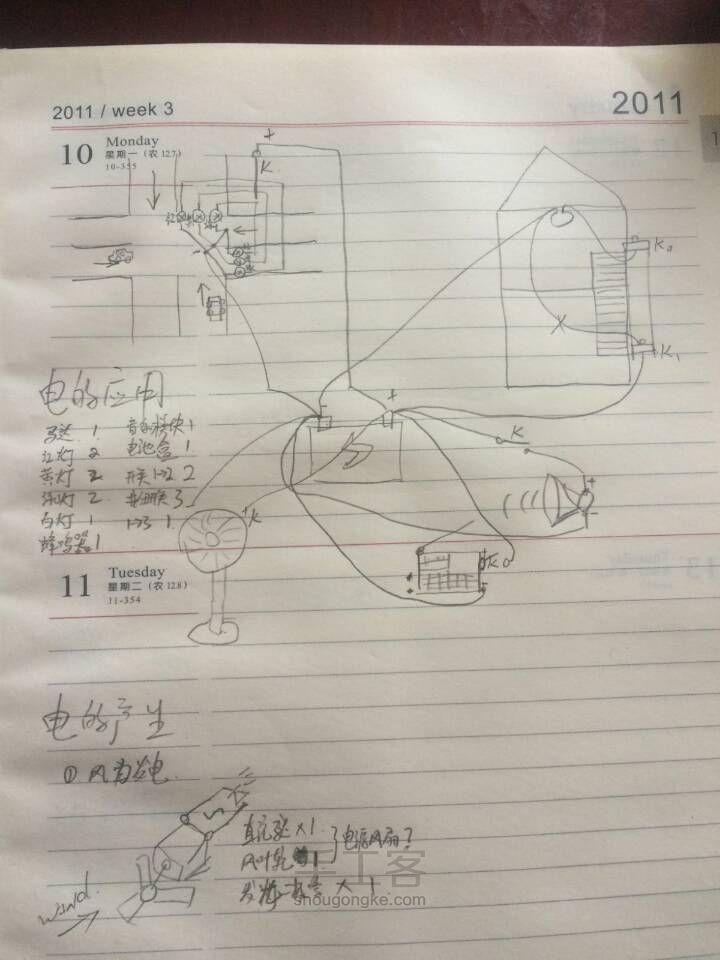 2011 / week 3
2011
10
Monday
星期一 (农 12.7)
10-355
+
K
K₀
K₁
电的应用
马达 1 音乐模块 1
红灯 2 电池盒 1
黄灯 2 开关 1→2 2
绿灯 2 3
白灯 1 1→3 1
蜂鸣器 1
+
K
+
-
+K
K₀
11
Tuesday
星期二 (农 12.8)
11-354
电的产生
① 风力发电
×1
风叶轮 1
电源风扇?
×1
wind
手工客
shougongke.com